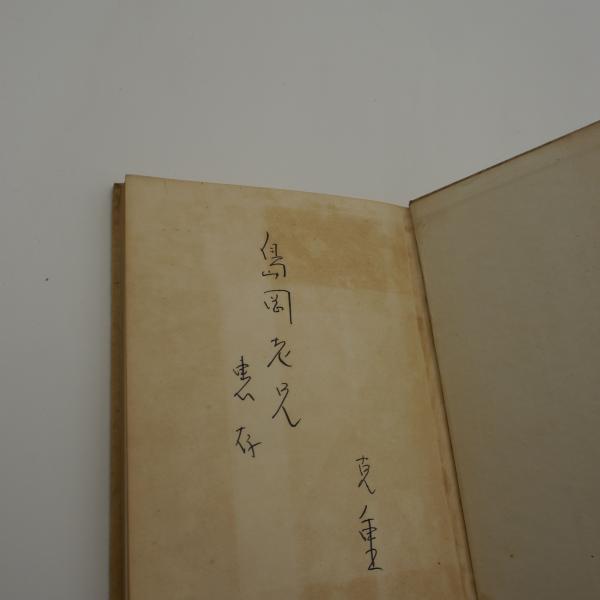 島岡老兄
惠存
克重